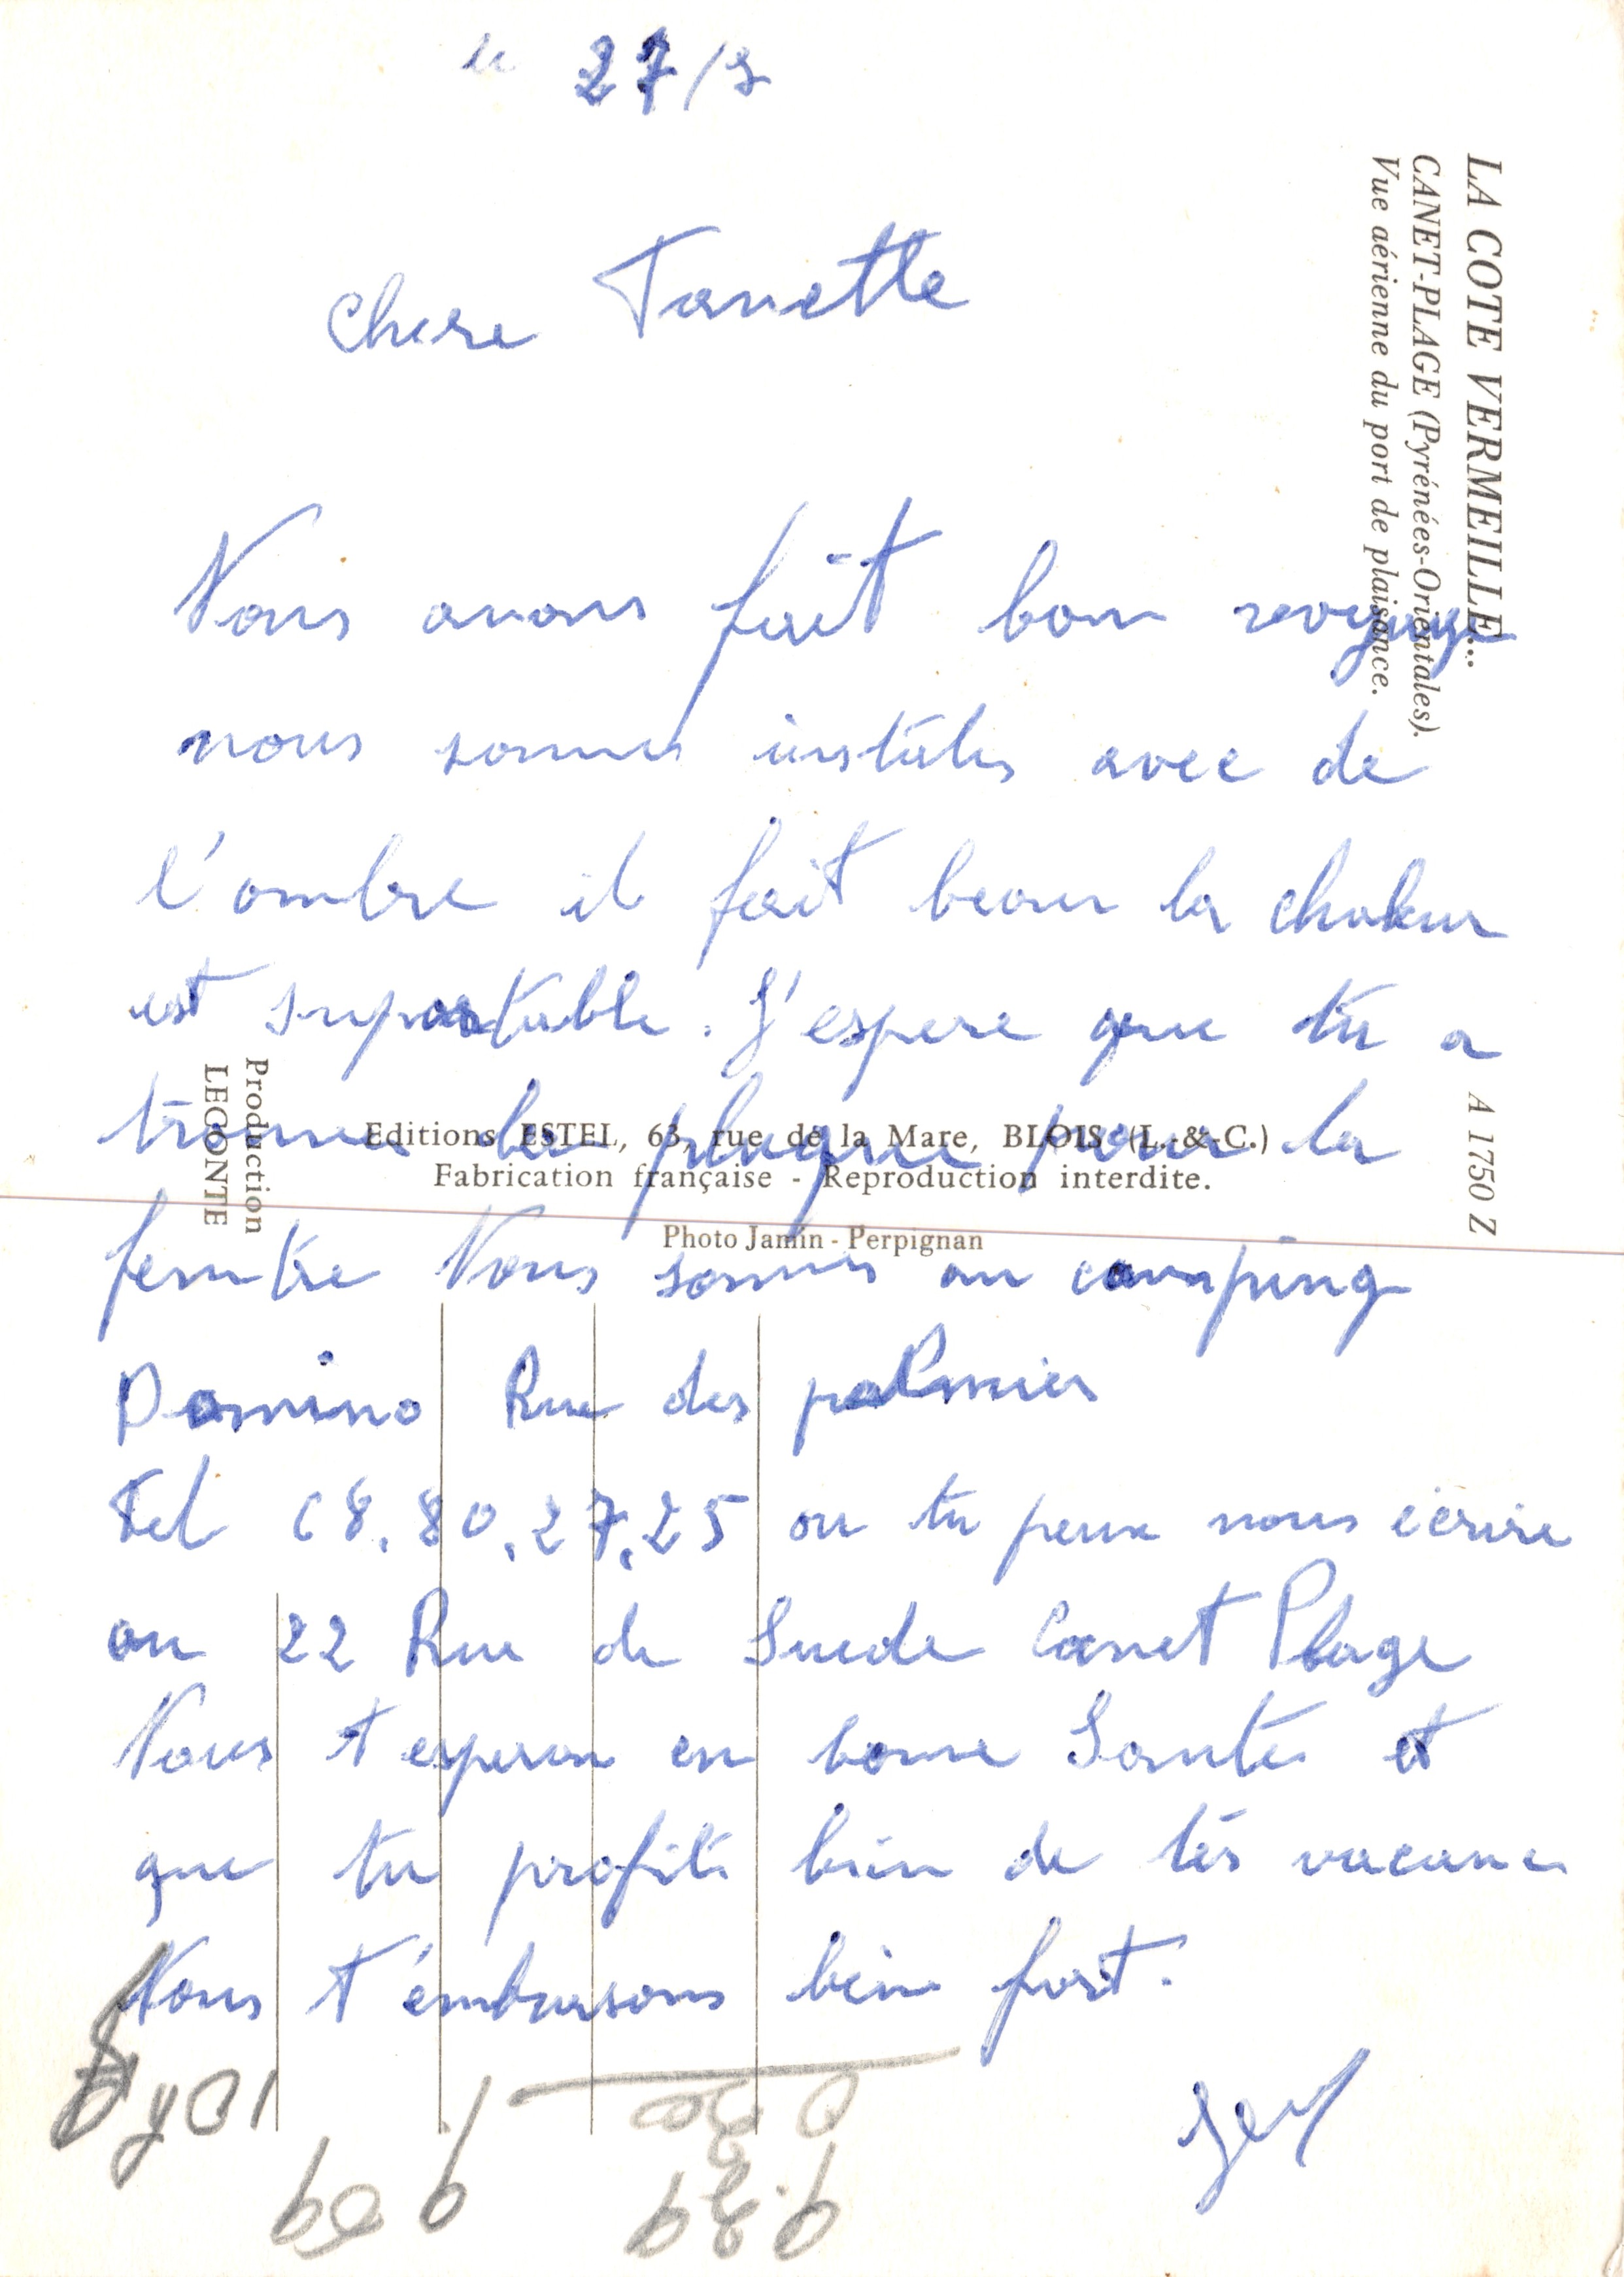 le 27/7
Chere Tanette
Nous avons fait bon voyage
nous sommes instalés avec de
l'ombre il fait beau la chaleur
est suportable. J'espere que tu a
trouver la plaque pour la
fenetre Nous sommes au camping
Domino Rue des palmiers
Tel 68.80.27.25 ou tu peux nous écrire
au 22 Rue de Suede Canet Plage
Nous t esperon en bonne Santé et
que tu profite bien de tes vacances
Nous t'émbrassons bien fort.
LA COTE VERMEILLE...
CANET-PLAGE (Pyrénées-Orientales).
Vue aérienne du port de plaisance.
A 1750 Z
Editions ESTEL, 63, rue de la Mare, BLOIS (L.-&-C.)
Fabrication française - Reproduction interdite.
Photo Jamin - Perpignan
Production
LECONTE